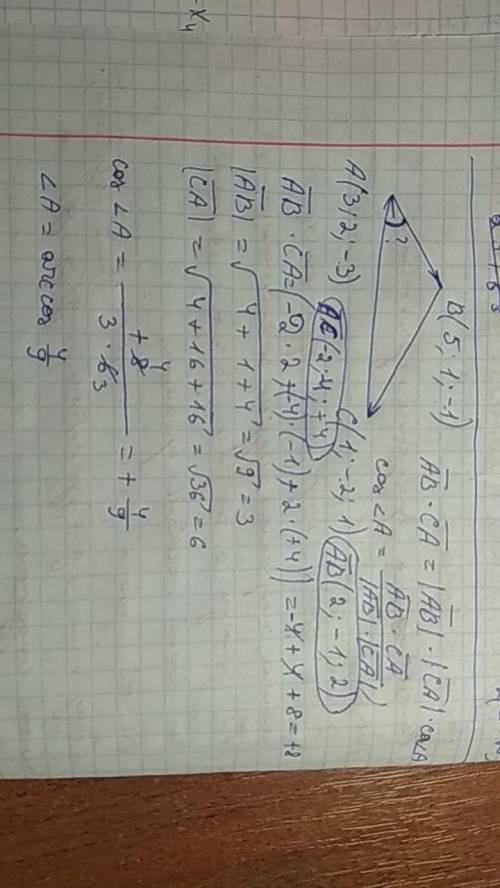 B(5; 1; -1) AB · CA = |AB| · |CA| · cos A
?
cos ∠A = AB · CA / |AB| · |CA|
A(3; 2; -3) C(1; -2; 1)
AC(-2; -4; +4) AB(2; -1; 2)
AB · CA = (-2 · 2 + (-4) · (-1) + 2 · (+4)) = -4 + 4 + 8 = +8
|AB| = √4 + 1 + 4 = √9 = 3
|CA| = √4 + 16 + 16 = √36 = 6
cos ∠A = +8 4 / 3 · 6 3 = + 4/9
∠A = arccos 4/9
x 4